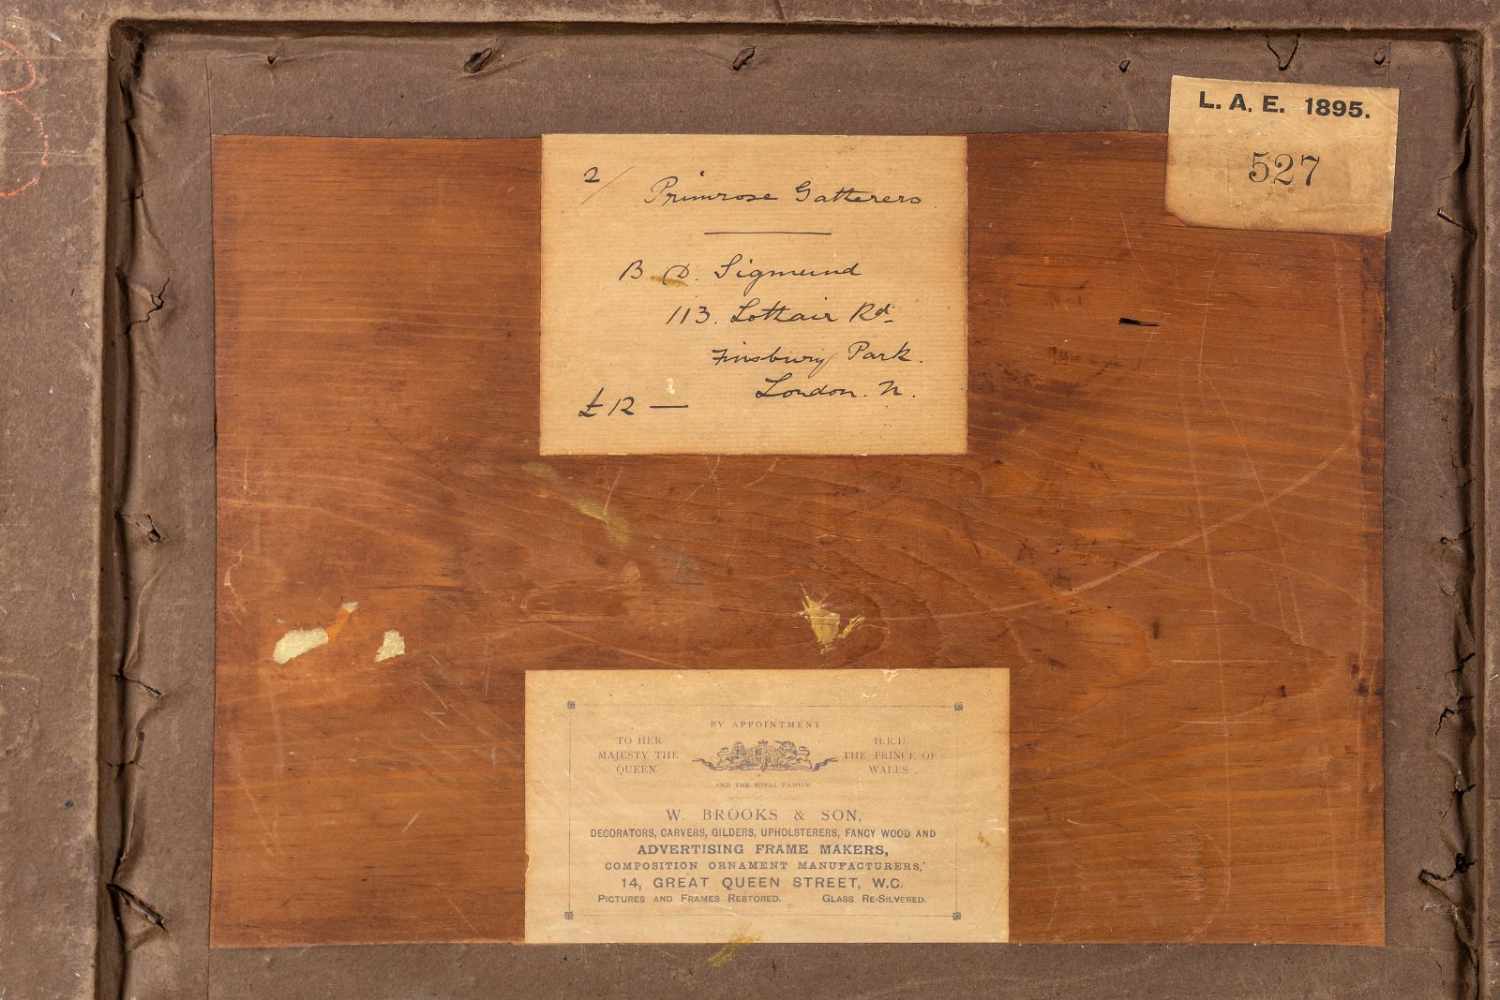 L. A. E. 1895.
527
2/ Primrose Gatherers
B. D. Sigmund
113. Lothair Rd.
Finsbury Park.
London. N.
£12 —
BY APPOINTMENT
TO HER
MAJESTY THE
QUEEN
H.R.H.
THE PRINCE OF
WALES
AND THE ROYAL FAMILY
W. BROOKS & SON,
DECORATORS, CARVERS, GILDERS, UPHOLSTERERS, FANCY WOOD AND
ADVERTISING FRAME MAKERS,
COMPOSITION ORNAMENT MANUFACTURERS,
14, GREAT QUEEN STREET, W.C.
PICTURES AND FRAMES RESTORED. GLASS RE-SILVERED.